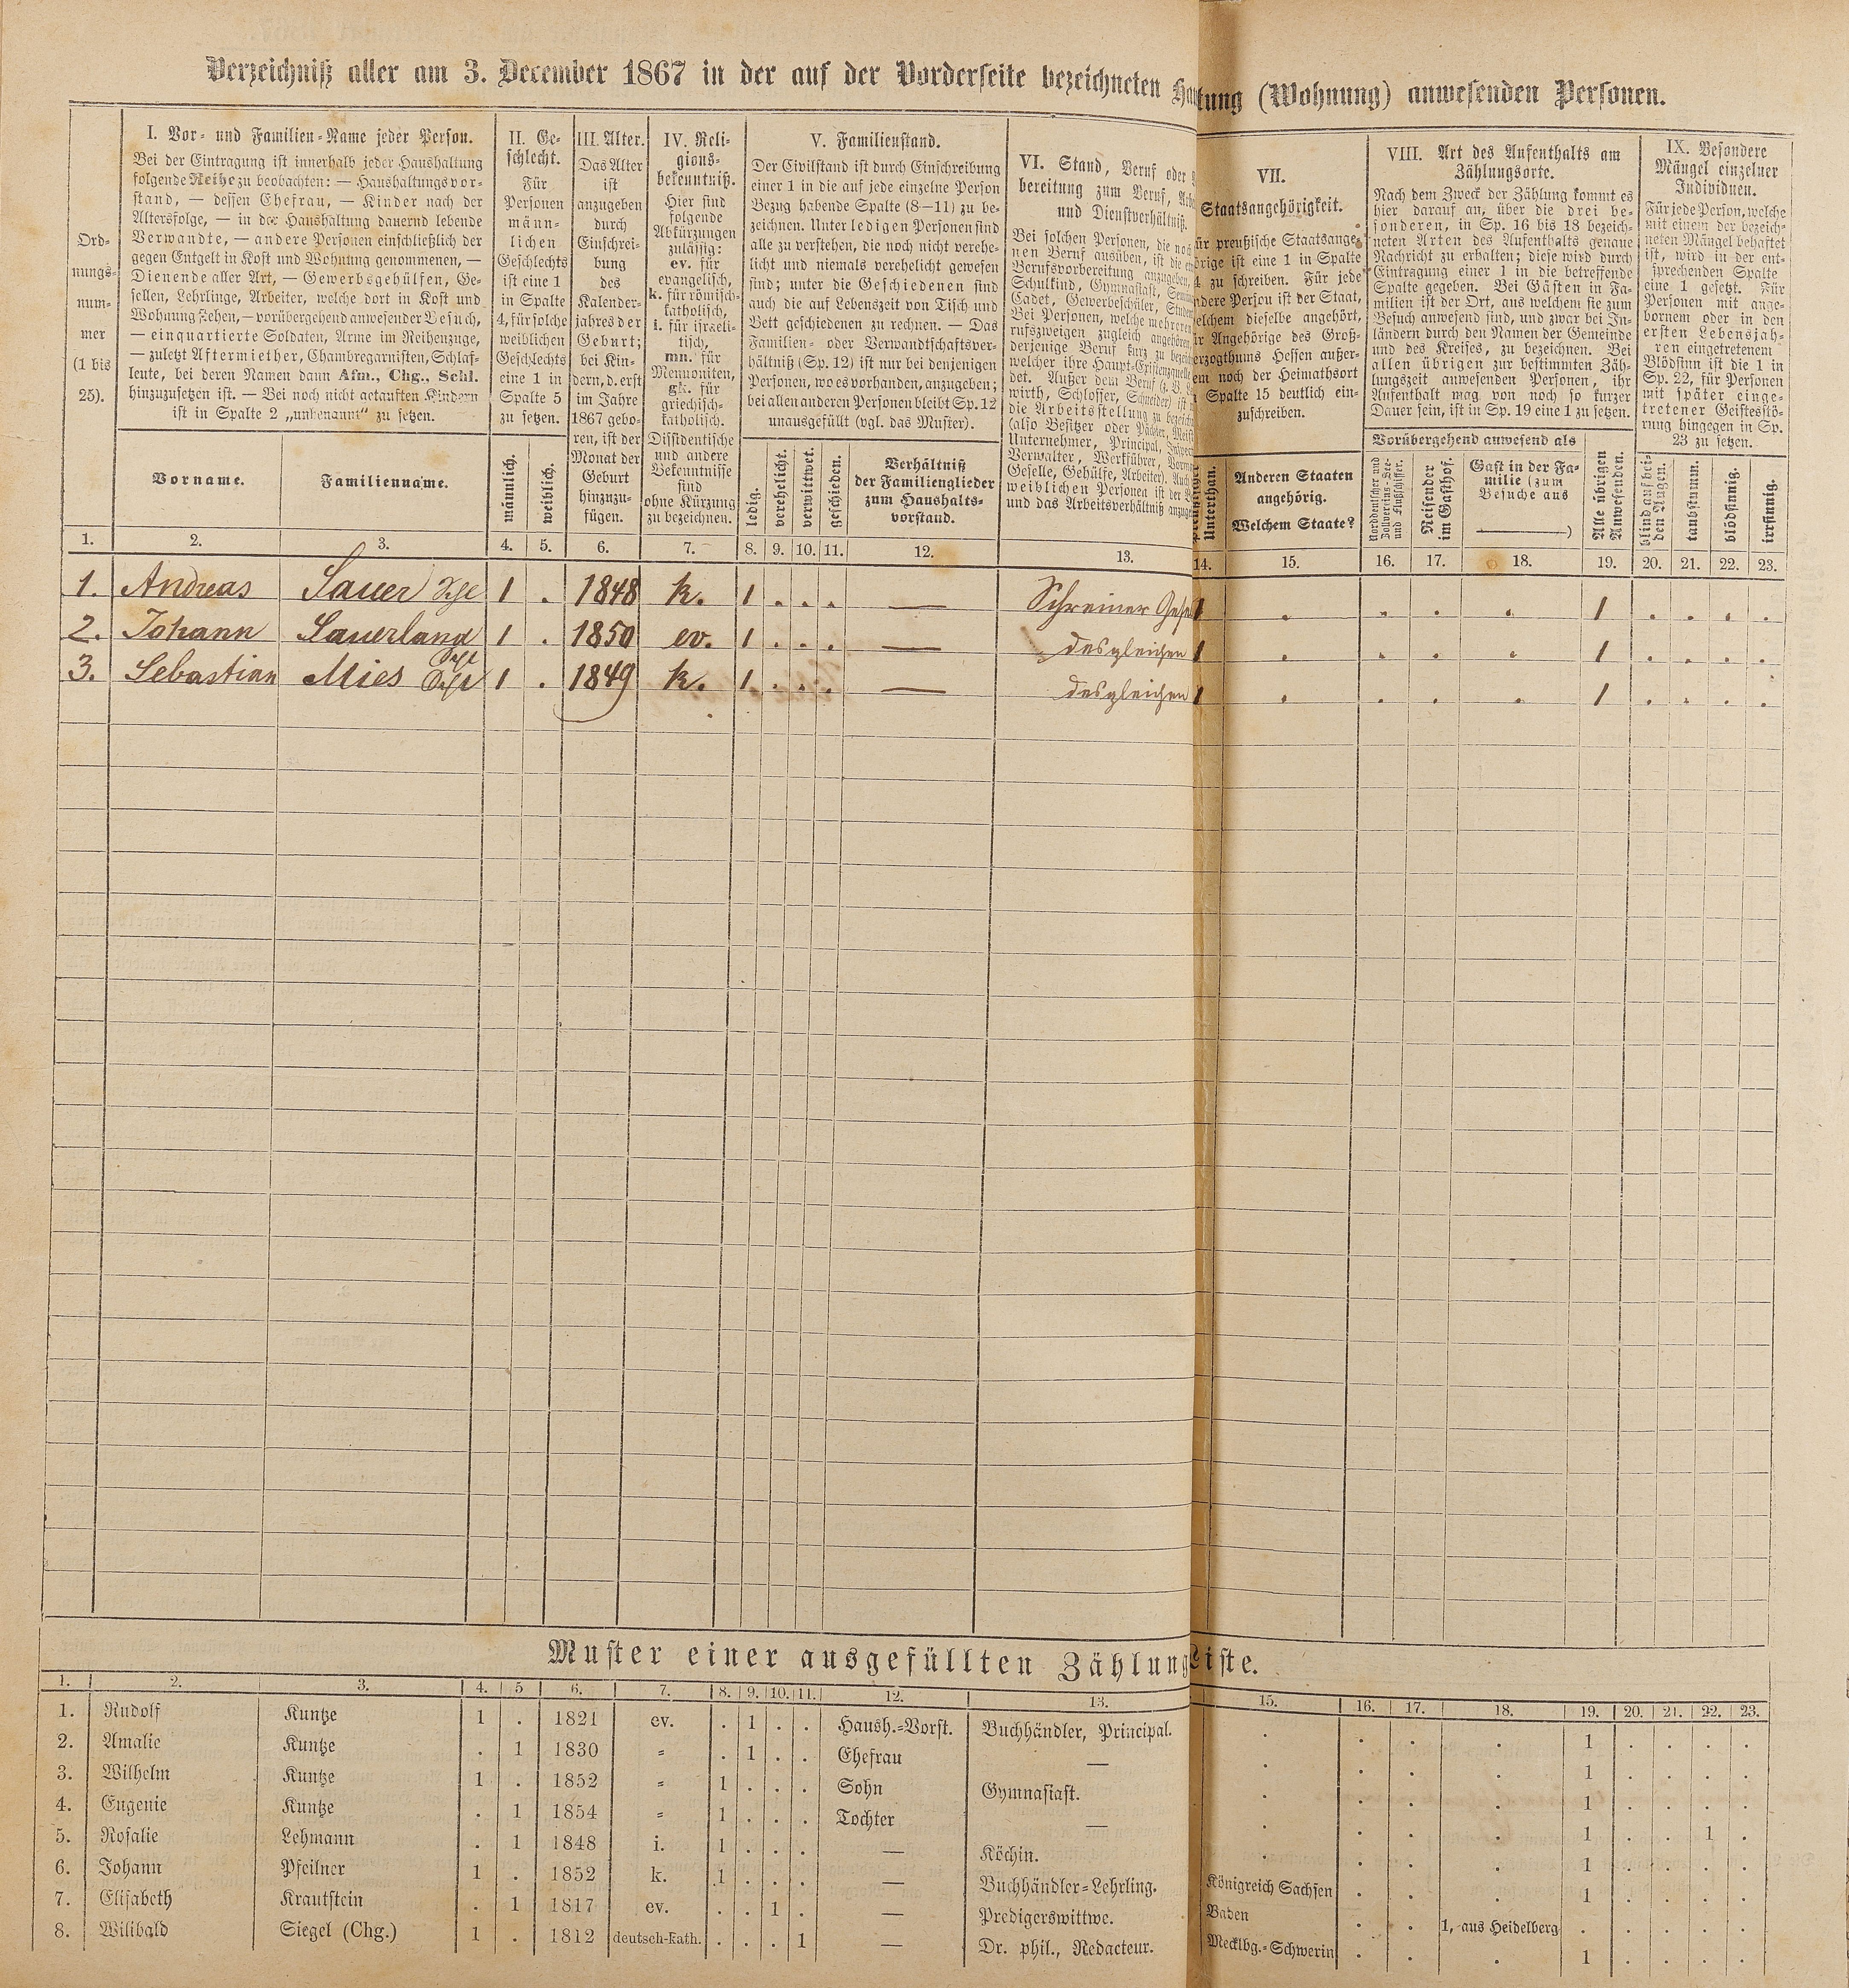 Verzeichniß aller am 3. December 1867 in der auf der Vorderseite bezeichneten Hau tung (Wohnung) anwesenden Personen.
Ord-
nungs-
num-
mer
(1 bis
25).
I. Vor- und Familien-Name jeder Person.
Bei der Eintragung ist innerhalb jeder Haushaltung
folgende Reihe zu beobachten: — Haushaltungsvor-
stand, — dessen Ehefrau, — Kinder nach der
Altersfolge, — in der Haushaltung dauernd lebende
Verwandte, — andere Personen einschließlich der
gegen Entgelt in Kost und Wohnung genommenen, —
Dienende aller Art, — Gewerbsgehülfen, Ge-
sellen, Lehrlinge, Arbeiter, welche dort in Kost und
Wohnung stehen, — vorübergehend anwesender Besuch,
— einquartierte Soldaten, Arme im Reihenzuge,
— zuletzt Aftermiether, Chambregarnisten, Schlaf-
leute, bei deren Namen dann Afm., Chg., Schl.
hinzuzusetzen ist. — Bei noch nicht getauften Kindern
ist in Spalte 2 „unbenannt“ zu setzen.
Vorname.
Familienname.
II. Ge-
schlecht.
Für
Personen
männ-
lichen
Geschlechts
ist eine 1
in Spalte
4, für solche
weiblichen
Geschlechts
eine 1 in
Spalte 5
zu setzen.
männlich.
weiblich.
III. Alter.
Das Alter
ist
anzugeben
durch
Einschrei-
bung
des
Kalender-
jahres der
Geburt;
bei Kin-
dern, d. erst
im Jahre
1867 gebo-
ren, ist der
Monat der
Geburt
hinzuzu-
fügen.
IV. Reli-
gions-
bekenntniß.
Hier sind
folgende
Abkürzungen
zulässig:
ev. für
evangelisch,
k. für römisch-
katholisch,
i. für israeli-
tisch,
mn. für
Mennoniten,
gk. für
griechisch-
katholisch.
Dissidentische
und andere
Bekenntnisse
sind
ohne Kürzung
zu bezeichnen.
V. Familienstand.
Der Civilstand ist durch Einschreibung
einer 1 in die auf jede einzelne Person
Bezug habende Spalte (8—11) zu be-
zeichnen. Unter ledigen Personen sind
alle zu verstehen, die noch nicht verehe-
licht und niemals verehelicht gewesen
sind; unter die Geschiedenen sind
auch die auf Lebenszeit von Tisch und
Bett geschiedenen zu rechnen. — Das
Familien- oder Verwandtschaftsver-
hältniß (Sp. 12) ist nur bei denjenigen
Personen, wo es vorhanden, anzugeben;
bei allen anderen Personen bleibt Sp. 12
unausgefüllt (vgl. das Muster).
ledig.
verehelicht.
verwittwet.
geschieden.
Verhältniß
der Familienglieder
zum Haushalts-
vorstand.
VI. Stand, Beruf oder
bereitung zum Beruf,
und Dienstverhältniß.
Bei solchen Personen, die
nen Beruf ausüben, ist die
Berufsvorbereitung anzugeben,
Schulkind, Gymnasiast,
Cadet, Gewerbeschüler,
Bei Personen, welche mehreren
rufszweigen zugleich angehören,
derjenige Beruf kurz zu
welcher ihre Haupt-Existenzquelle
det. Außer dem Beruf
wirth, Schlosser, Schneider) ist
die Arbeitsstellung zu
(also Besitzer oder Pächter,
Unternehmer, Principal,
Verwalter, Werkführer,
Geselle, Gehülfe, Arbeiter). Auch
weiblichen Personen ist der
und das Arbeitsverhältniß
VII.
Staatsangehörigkeit.
ür preußische Staatsange-
örige ist eine 1 in Spalte
4 zu schreiben. Für jede
ndere Person ist der Staat,
elchem dieselbe angehört,
ür Angehörige des Groß-
erzogthums Hessen außer-
em noch der Heimathsort
Spalte 15 deutlich ein-
zuschreiben.
Unterthan.
Anderen Staaten
angehörig.
Welchem Staate?
VIII. Art des Aufenthalts am
Zählungsorte.
Nach dem Zweck der Zählung kommt es
hier darauf an, über die drei be-
sonderen, in Sp. 16 bis 18 bezeich-
neten Arten des Aufenthalts genaue
Nachricht zu erhalten; diese wird durch
Eintragung einer 1 in die betreffende
Spalte gegeben. Bei Gästen in Fa-
milien ist der Ort, aus welchem sie zum
Besuch anwesend sind, und zwar bei In-
ländern durch den Namen der Gemeinde
und des Kreises, zu bezeichnen. Bei
allen übrigen zur bestimmten Zäh-
lungszeit anwesenden Personen, ihr
Aufenthalt mag von noch so kurzer
Dauer sein, ist in Sp. 19 eine 1 zu setzen.
Vorübergehend anwesend als
Norddeutscher und
Zollvereins-See-
und Flußschiffer.
Reisender
im Gasthof.
Gast in der Fa-
milie (zum
Besuche aus
)
Alle übrigen
Anwesenden.
IX. Besondere
Mängel einzelner
Individuen.
Für jede Person, welche
mit einem der bezeich-
neten Mängel behaftet
ist, wird in der ent-
sprechenden Spalte
eine 1 gesetzt. Für
Personen mit ange-
bornem oder in den
ersten Lebensjah-
ren eingetretenem
Blödsinn ist die 1 in
Sp. 22, für Personen
mit später einge-
tretener Geistesstö-
rung hingegen in Sp.
23 zu setzen.
blind auf bei-
den Augen.
taubstumm.
blödsinnig.
irrsinnig.
1. 2. 3. 4. 5. 6. 7. 8. 9. 10. 11. 12. 13. 14. 15. 16. 17. 18. 19. 20. 21. 22. 23.
1. Andreas Sauer 1 . 1848 k. 1 . . . — Schreiner Gesel 1 . . . . 1 . . . .
2. Johann Sauerland 1 . 1850 ev. 1 . . . — desgleichen 1 . . . . 1 . . . .
3. Sebastian Mies 1 . 1849 k. 1 . . . — desgleichen 1 . . . . 1 . . . .
Muster einer ausgefüllten Zählung liste.
1. 2. 3. 4. 5 6. 7. 8. 9. 10. 11. 12. 13. 15. 16. 17. 18. 19. 20. 21. 22. 23.
1. Rudolf Kuntze 1 . 1821 ev. . 1 . . Haush.-Vorst. Buchhändler, Principal. . . . . 1 . . . .
2. Amalie Kuntze . 1 1830 = . 1 . . Ehefrau — . . . . 1 . . . .
3. Wilhelm Kuntze 1 . 1852 = 1 . . . Sohn Gymnasiast. . . . . 1 . . . .
4. Eugenie Kuntze . 1 1854 = 1 . . . Tochter — . . . . 1 . . 1 .
5. Rosalie Lehmann . 1 1848 i. 1 . . . — Köchin. . . . . 1 . . . .
6. Johann Pfeilner 1 . 1852 k. 1 . . . — Buchhändler-Lehrling. Königreich Sachsen . . . 1 . . . .
7. Elisabeth Krautstein . 1 1817 ev. . . 1 . — Predigerswittwe. Baden . . 1, aus Heidelberg . . . . .
8. Wilibald Siegel (Chg.) 1 . 1812 deutsch-kath. . . . 1 — Dr. phil., Redacteur. Mecklbg.-Schwerin . . . 1 . . . .